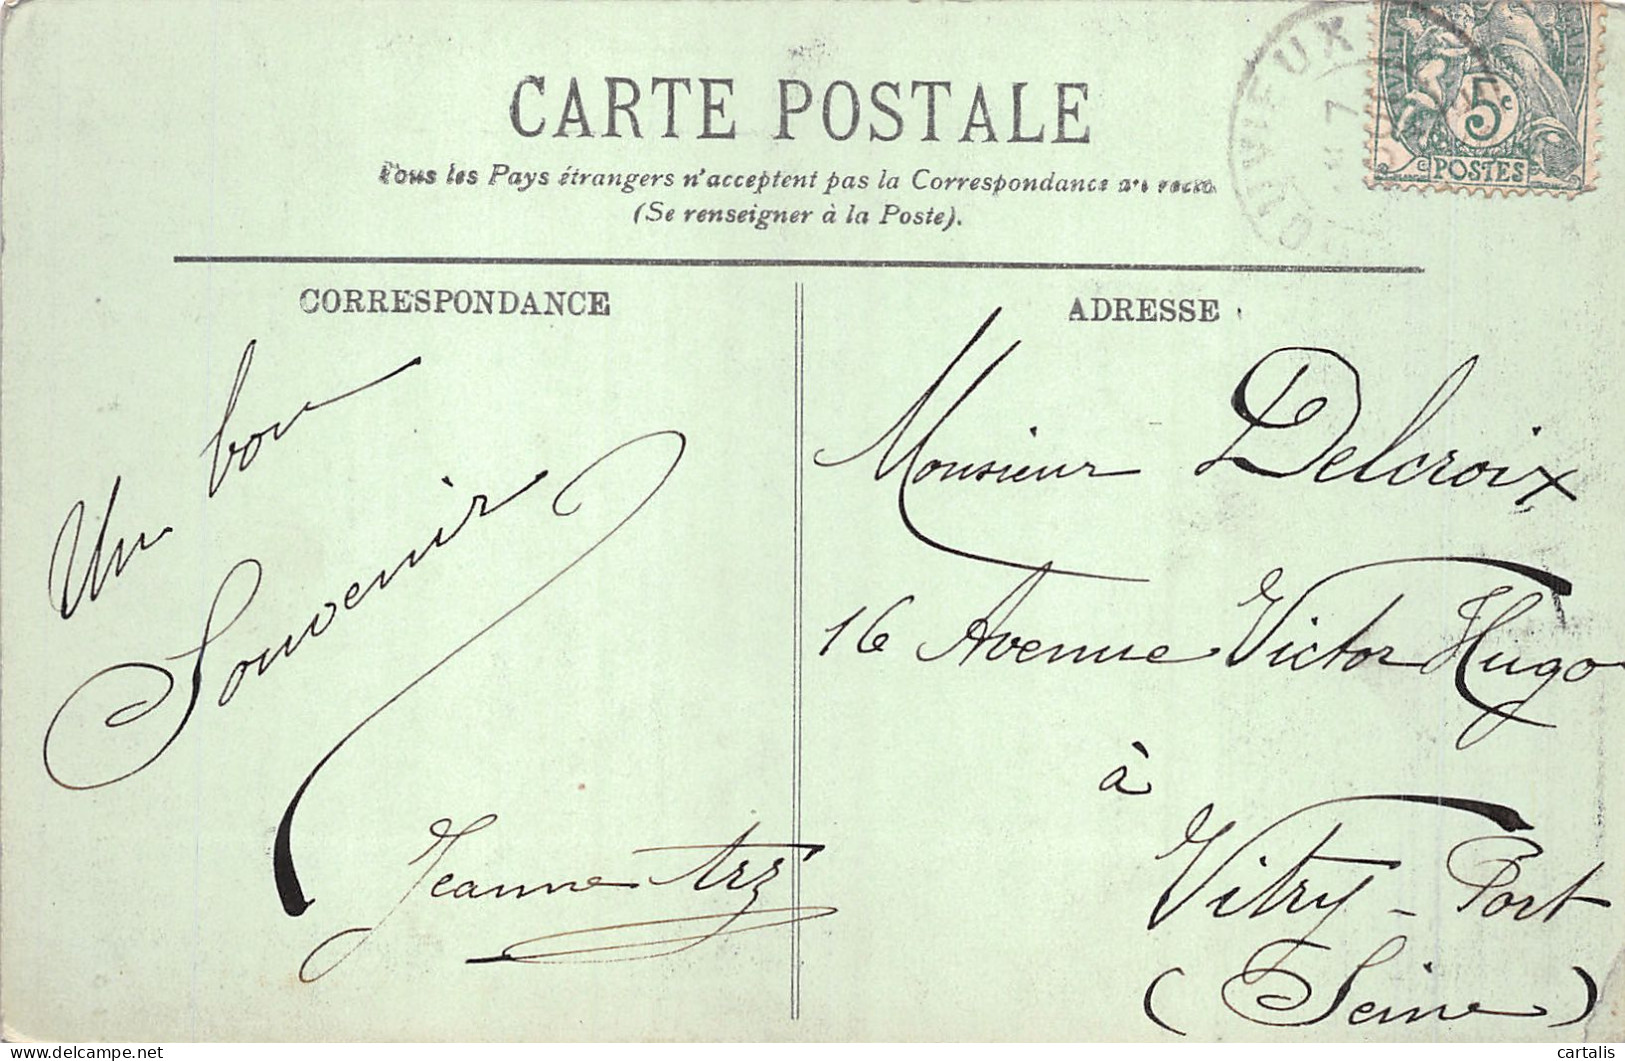 CARTE POSTALE
Tous les Pays étrangers n'acceptent pas la Correspondance au recto
(Se renseigner à la Poste).
GOUVIEUX
7
5c
POSTES
CORRESPONDANCE
Un bon
Souvenir
Jeanne
ADRESSE
Monsieur Delcroix
16 Avenue Victor Hugo
à
Vitry-Port
(Seine)
cartalis